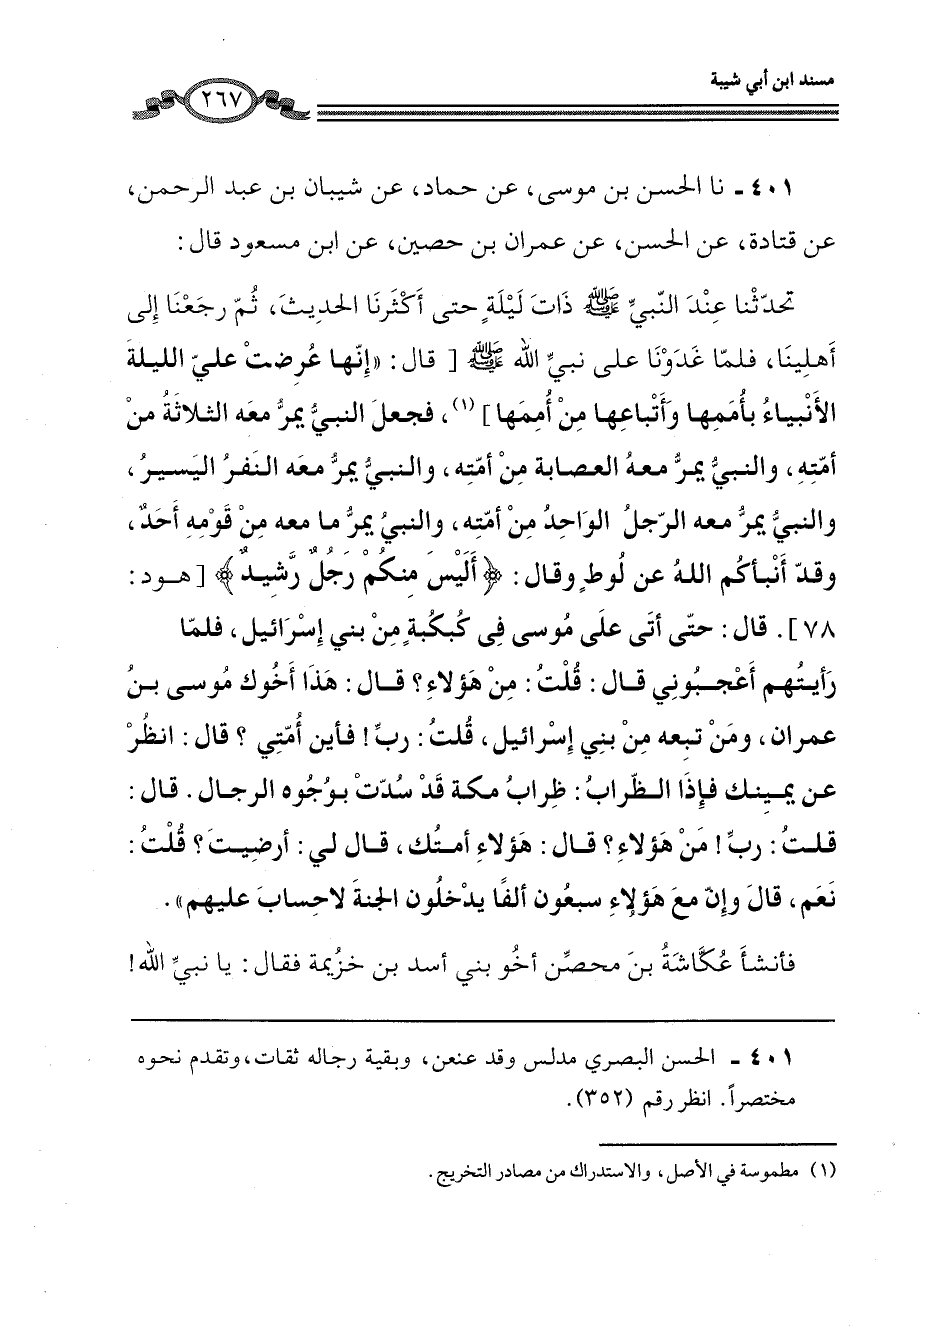 مسند ابن أبي شيبة
٢٦٧
٤٠١ ـ نا الحسن بن موسى، عن حماد، عن شيبان بن عبد الرحمن،
عن قتادة، عن الحسن، عن عمران بن حصين، عن ابن مسعود قال:
تحدّثْنا عِنْدَ النّبيِّ ﷺ ذَاتَ لَيْلَةٍ حتى أَكْثَرنَا الحديثَ، ثُمّ رجَعْنَا إلى
أَهلِينَا، فلمّا غَدَوْنَا على نبيِّ الله ﷺ [ قال: «إنّها عُرضتْ عليّ الليلةَ
الأَنْبياءُ بأُمَمِها وأَتْباعِها مِنْ أُممَها] (١)، فجعلَ النبيُّ يمرُّ معَه الثلاثةُ منْ
أمّتِهِ، والنبيُّ يمرُّ معهُ العصابة مِنْ أمّتِه، والنبيُّ يمرُّ معَه النَفرُ اليَسيرُ،
والنبيُّ يمرُّ معه الرّجلُ الوَاحِدُ مِنْ أمّتِه، والنبيُ يمرُّ ما معه مِنْ قَوْمِهِ أَحَدٌ،
وقدّ أَنْبأكُم اللهُ عن لُوطٍ وقال: ﴿أَلَيْسَ مِنكُمْ رَجُلٌ رَّشِيدٌ﴾ [هود:
٧٨]. قال: حتّى أتَى علَى مُوسى فِى كُبكُبةٍ مِنْ بني إسْرائيل، فلمّا
رَأيتُهم أعْجبُوني قال: قُلْتُ: مِنْ هَؤلاءِ؟ قال: هَذَا أخُوك مُوسى بنُ
عمران، ومَنْ تبعه مِنْ بني إسْرائيل، قُلتُ: ربِّ! فأين أُمّتِي ؟ قال: انظُرْ
عن يمينك فإذَا الظّرابُ: ظِرابُ مكة قَدْ سُدّتْ بوُجُوه الرجال. قال:
قلتُ: ربِّ! مَنْ هَؤلاءِ؟ قال: هَؤلاءِ أمتُك، قال لي: أرضِيتَ؟ قُلْتُ:
نَعَم، قالَ وإنّ معَ هَؤلاءِ سبعُون ألفًا يدْخلُون الجنةَ لاحِسابَ عليهم».
فأنشأَ عُكَّاشَةُ بنَ محصنٍ أخُو بني أسد بن خزيمة فقال: يا نبيَّ الله!
٤٠١ ـ الحسن البصري مدلس وقد عنعن، وبقية رجاله ثقات، وتقدم نحوه
مختصراً. انظر رقم (٣٥٢).
(١) مطموسة في الأصل، والاستدراك من مصادر التخريج.